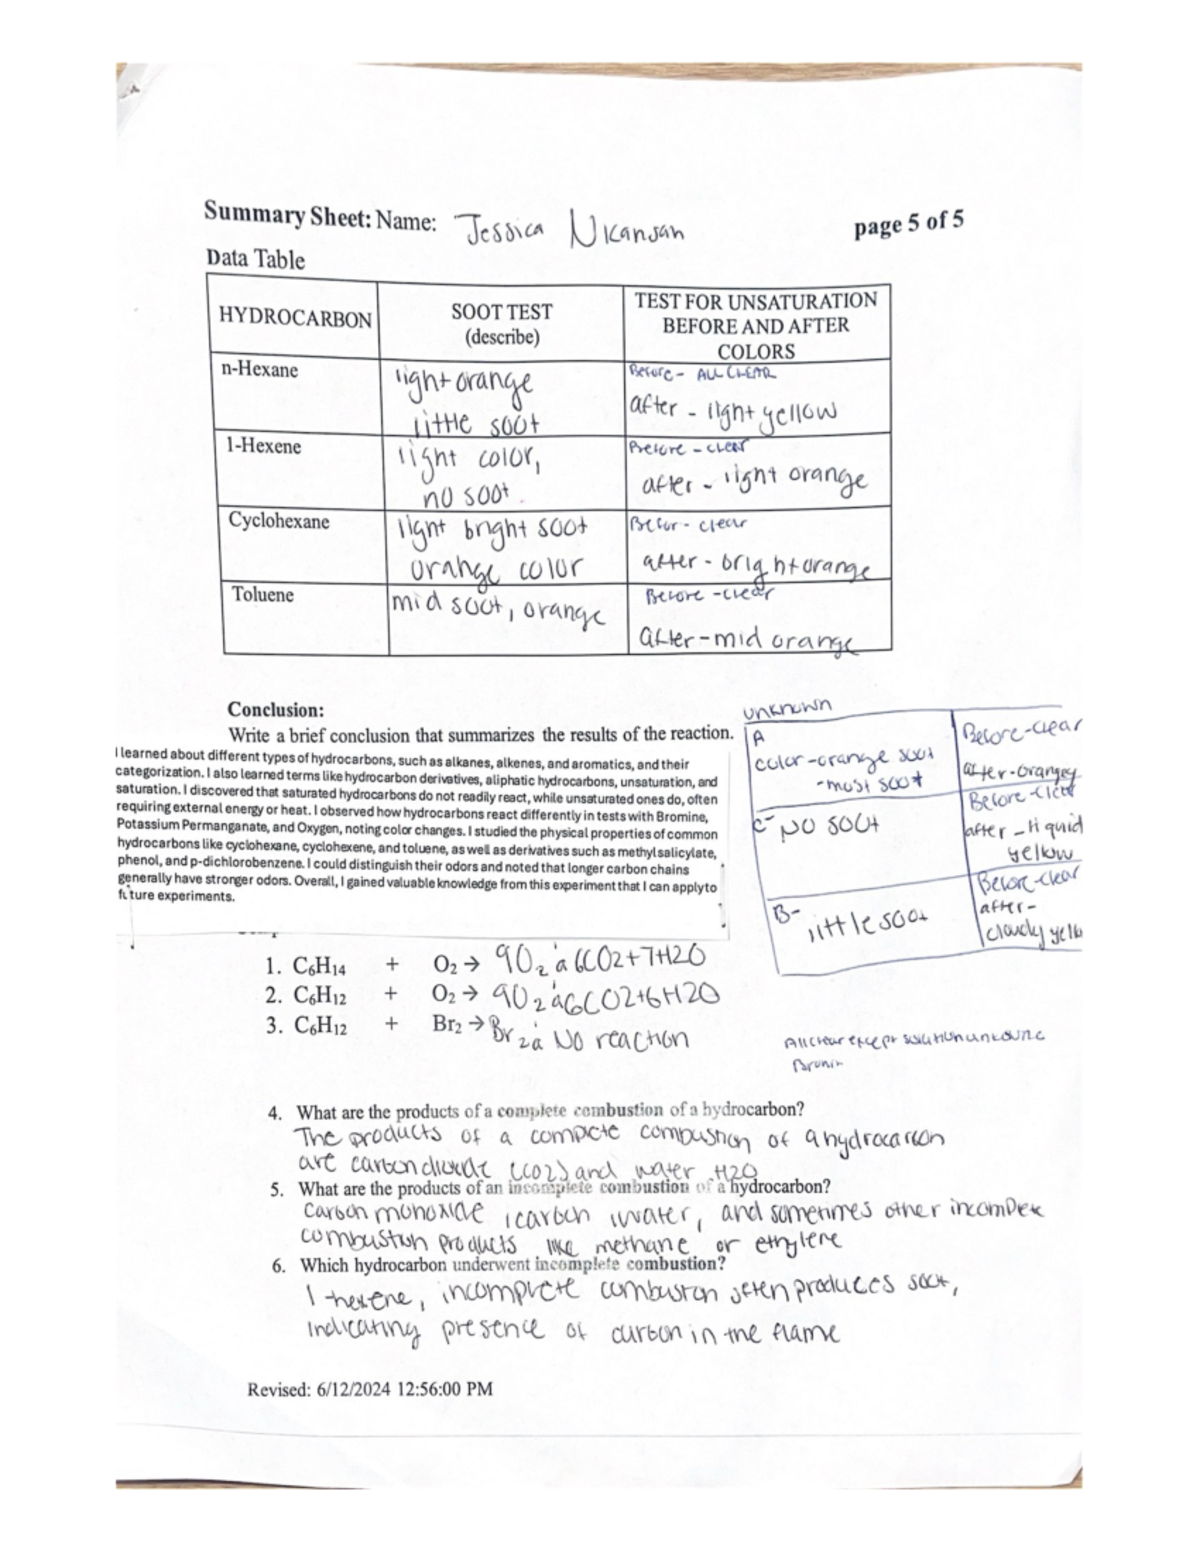 Summary Sheet: Name: Jessica Nkansah
page 5 of 5
Data Table
HYDROCARBON
SOOT TEST
(describe)
TEST FOR UNSATURATION
BEFORE AND AFTER
COLORS
n-Hexane
light orange
little soot
Before - ALL CLEAR
after - light yellow
1-Hexene
light color,
no soot.
Before - clear
after - light orange
Cyclohexane
light bright soot
orange color
Befor - clear
after - bright orange
Toluene
mid soot, orange
Before - clear
after - mid orange
Conclusion:
Write a brief conclusion that summarizes the results of the reaction.
I learned about different types of hydrocarbons, such as alkanes, alkenes, and aromatics, and their
categorization. I also learned terms like hydrocarbon derivatives, aliphatic hydrocarbons, unsaturation, and
saturation. I discovered that saturated hydrocarbons do not readily react, while unsaturated ones do, often
requiring external energy or heat. I observed how hydrocarbons react differently in tests with Bromine,
Potassium Permanganate, and Oxygen, noting color changes. I studied the physical properties of common
hydrocarbons like cyclohexane, cyclohexene, and toluene, as well as derivatives such as methyl salicylate,
phenol, and p-dichlorobenzene. I could distinguish their odors and noted that longer carbon chains
generally have stronger odors. Overall, I gained valuable knowledge from this experiment that I can apply to
future experiments.
unknown
A
color-orange soot
- most soot
Before-clear
after-orangey
C- NO SOOT
Before-clear
after - liquid
yellow
B- little soot
Before-clear
after-
cloudy
1. C6H14 + O2 → 9O2 à 6CO2+7H2O
2. C6H12 + O2 → 9O2 à 6CO2+6H2O
3. C6H12 + Br2 → Br2 à No reaction
All clear except solution
4. What are the products of a complete combustion of a hydrocarbon?
The products of a complete combustion of a hydrocarbon
are carbon dioxide (CO2) and water H2O
5. What are the products of an incomplete combustion of a hydrocarbon?
Carbon monoxide, carbon, water, and sometimes other incomplete
combustion products like methane or ethylene
6. Which hydrocarbon underwent incomplete combustion?
1 hexene, incomplete combustion often produces soot,
indicating presence of carbon in the flame
Revised: 6/12/2024 12:56:00 PM